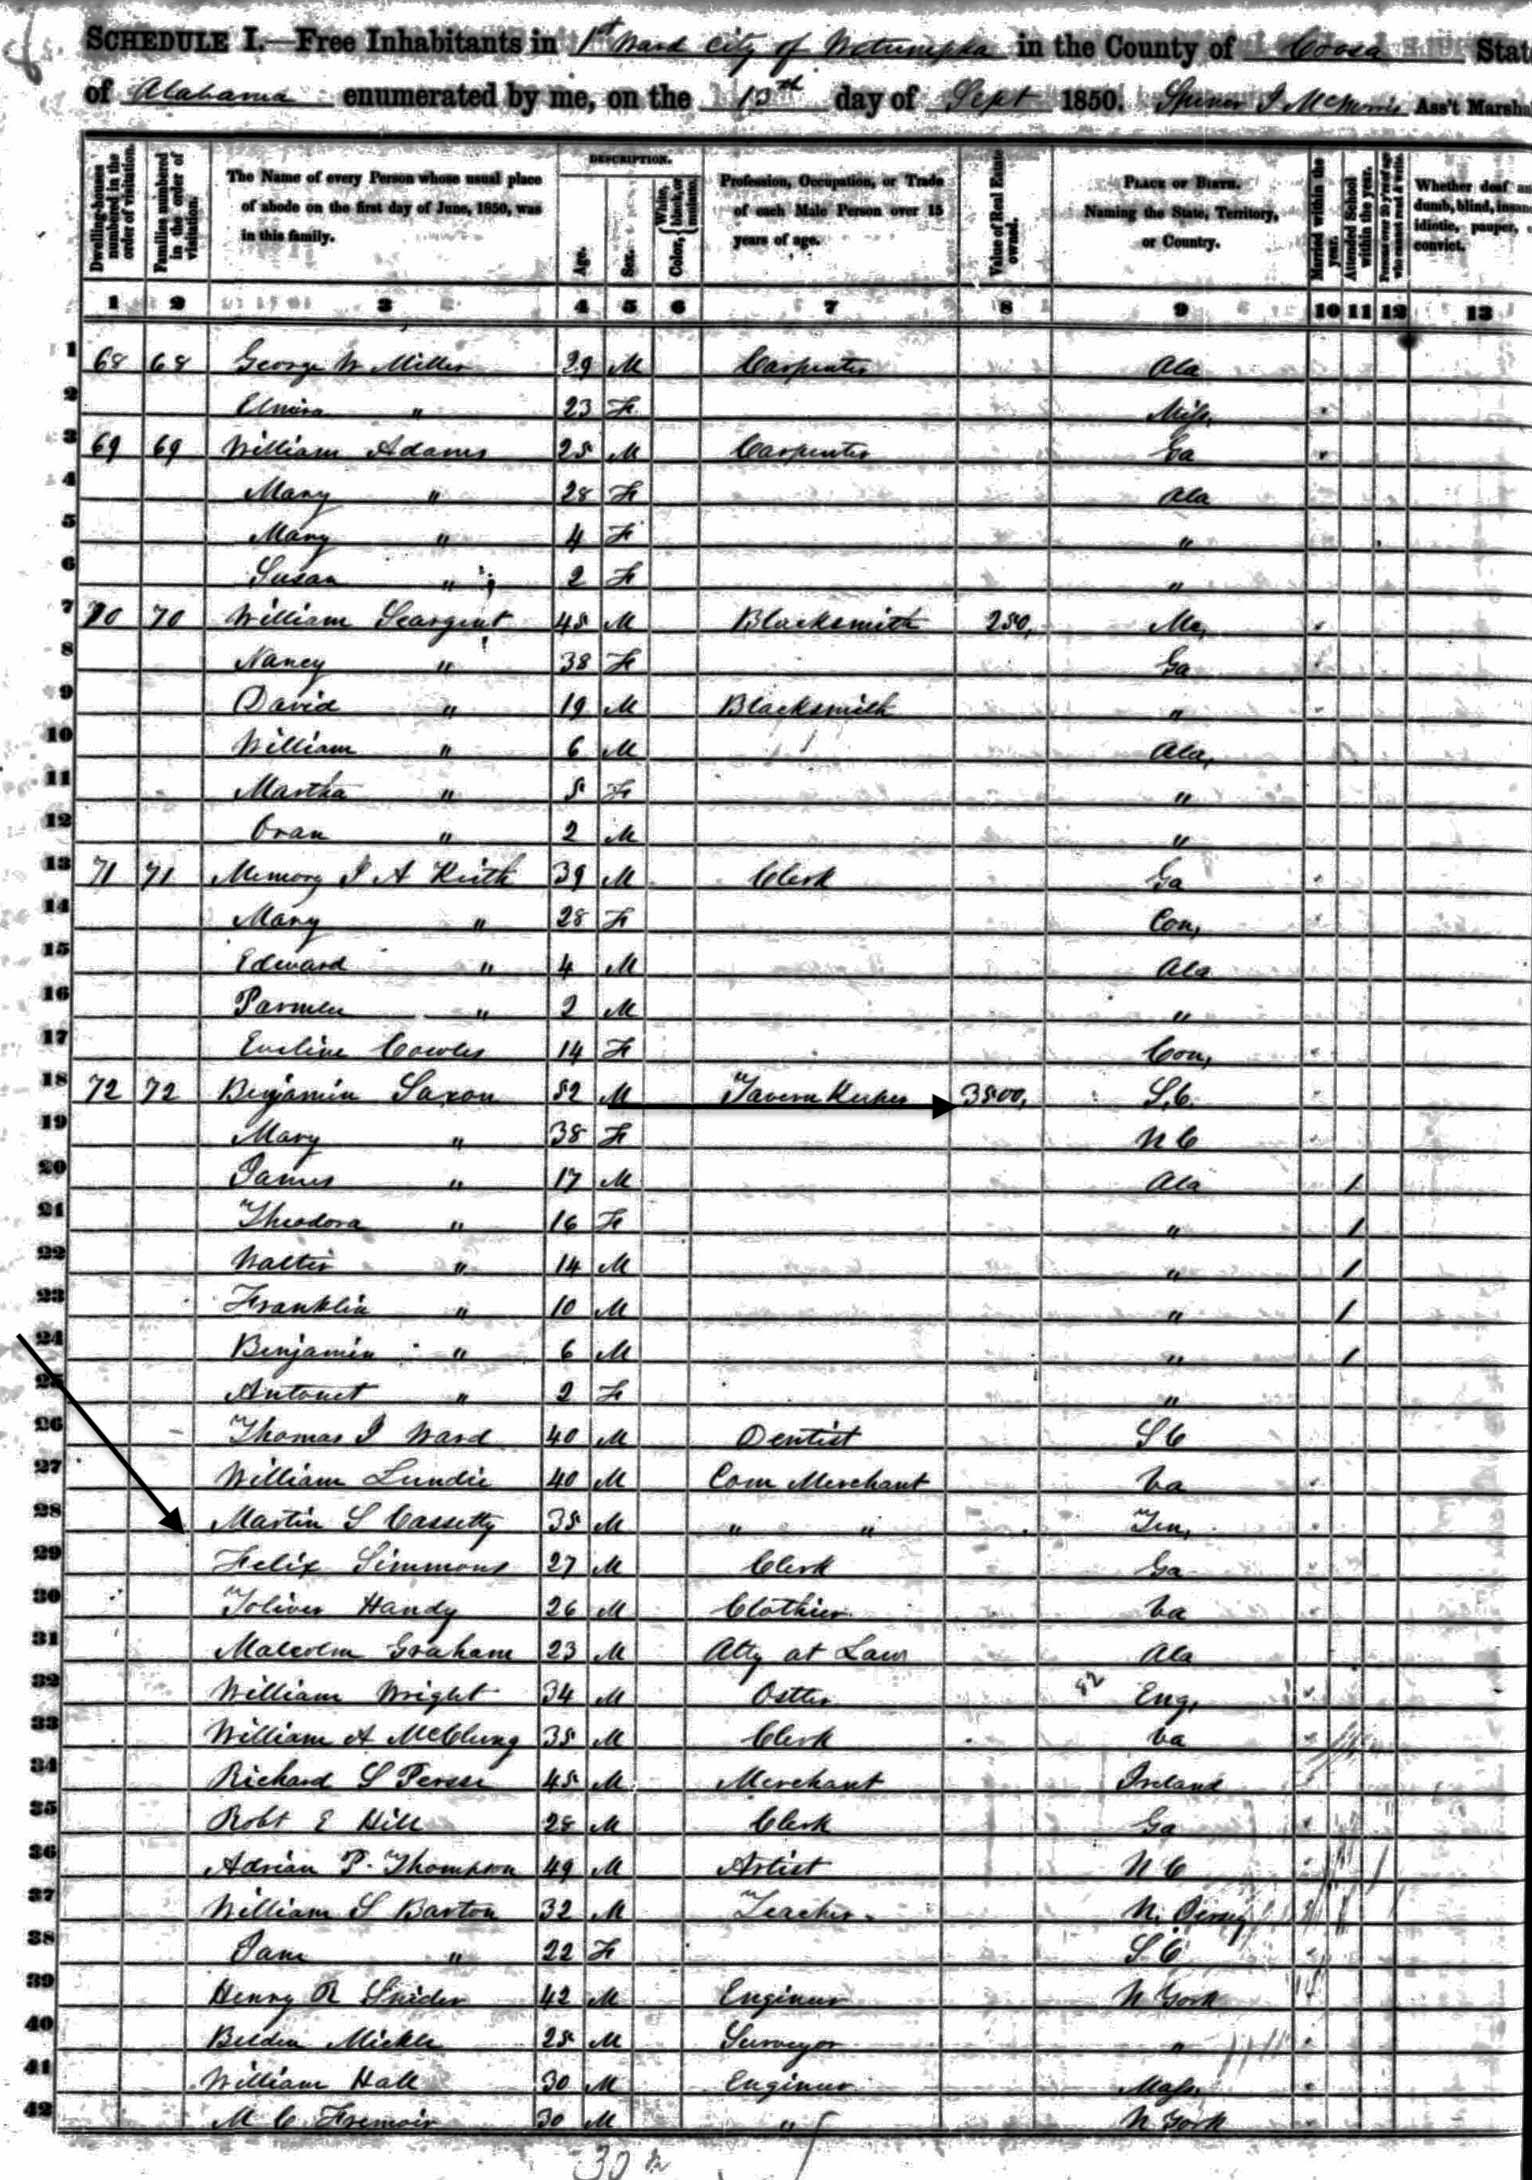 SCHEDULE I.—Free Inhabitants in 1st Ward City of Wetumpka in the County of Coosa State
of Alabama enumerated by me, on the 13th day of Sept 1850. Ass't Marsha
Dwelling-houses numbered in the order of visitation.
Families numbered in the order of visitation.
The Name of every Person whose usual place of abode on the first day of June, 1850, was in this family.
DESCRIPTION.
Age.
Sex.
Color, { White, black, or mulatto.
Profession, Occupation, or Trade of each Male Person over 15 years of age.
Value of Real Estate owned.
PLACE OF BIRTH. Naming the State, Territory, or Country.
Married within the year.
Attended School within the year.
Persons over 20 y'rs of age who cannot read & write.
Whether deaf and dumb, blind, insane, idiotic, pauper, or convict.
1 2 3 4 5 6 7 8 9 10 11 12 13
1 68 68 George W Miller 29 M Carpenter Ala
2 Elmira " 23 F Miss,
3 69 69 William Adams 25 M Carpenter Ga
4 Mary " 28 F Ala
5 Mary " 4 F "
6 Susan " 2 F "
7 70 70 William Seargent 45 M Blacksmith 250, Me,
8 Nancy " 38 F Ga
9 David " 19 M Blacksmith "
10 William " 6 M Ala,
11 Martha " 5 F "
12 Oran " 2 M "
13 71 71 Memory I A Keith 39 M Clerk Ga
14 Mary " 28 F Con,
15 Edward " 4 M Ala
16 Parmer " 2 M "
17 Eveline Cowles 14 F Con,
18 72 72 Benjamin Saxon 52 M Tavern Keeper 3500, S.C.
19 Mary " 38 F N C
20 James " 17 M Ala 1
21 Theodora " 16 F " 1
22 Walter " 14 M " 1
23 Franklin " 10 M " 1
24 Benjamin " 6 M " 1
25 Antonet " 2 F "
26 Thomas I Ward 40 M Dentist S C
27 William Lundie 40 M Com Merchant Va
28 Martin S Cassetty 35 M " " Ten,
29 Felix Simmons 27 M Clerk Ga
30 Toliver Handy 26 M Clothier Va
31 Malcolm Graham 23 M Atty at Law Ala
32 William Wright 34 M Ostler Eng,
33 William A McClung 35 M Clerk Va
34 Richard S Persse 45 M Merchant Ireland
35 Robt E Hill 28 M Clerk Ga
36 Adrian P. Thompson 49 M Artist N C
37 William S Barton 32 M Teacher N. Jersey
38 Jane " 22 F S C
39 Henry R Snider 42 M Engineer N York
40 Belden Mickle 25 M Surveyor "
41 William Hall 30 M Engineer Mass,
42 M C 30 M " N York